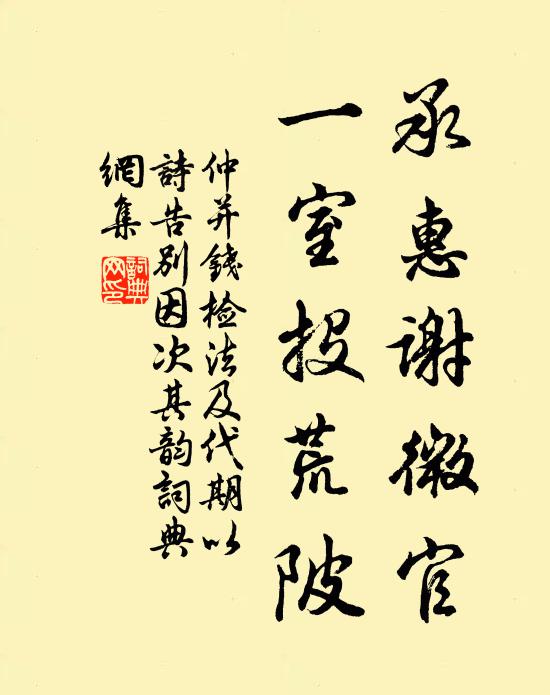 承惠謝微官
一室投荒陂
仲并錢檢法及代期以
詩告別因次其韵詞典
網集
詞典網印